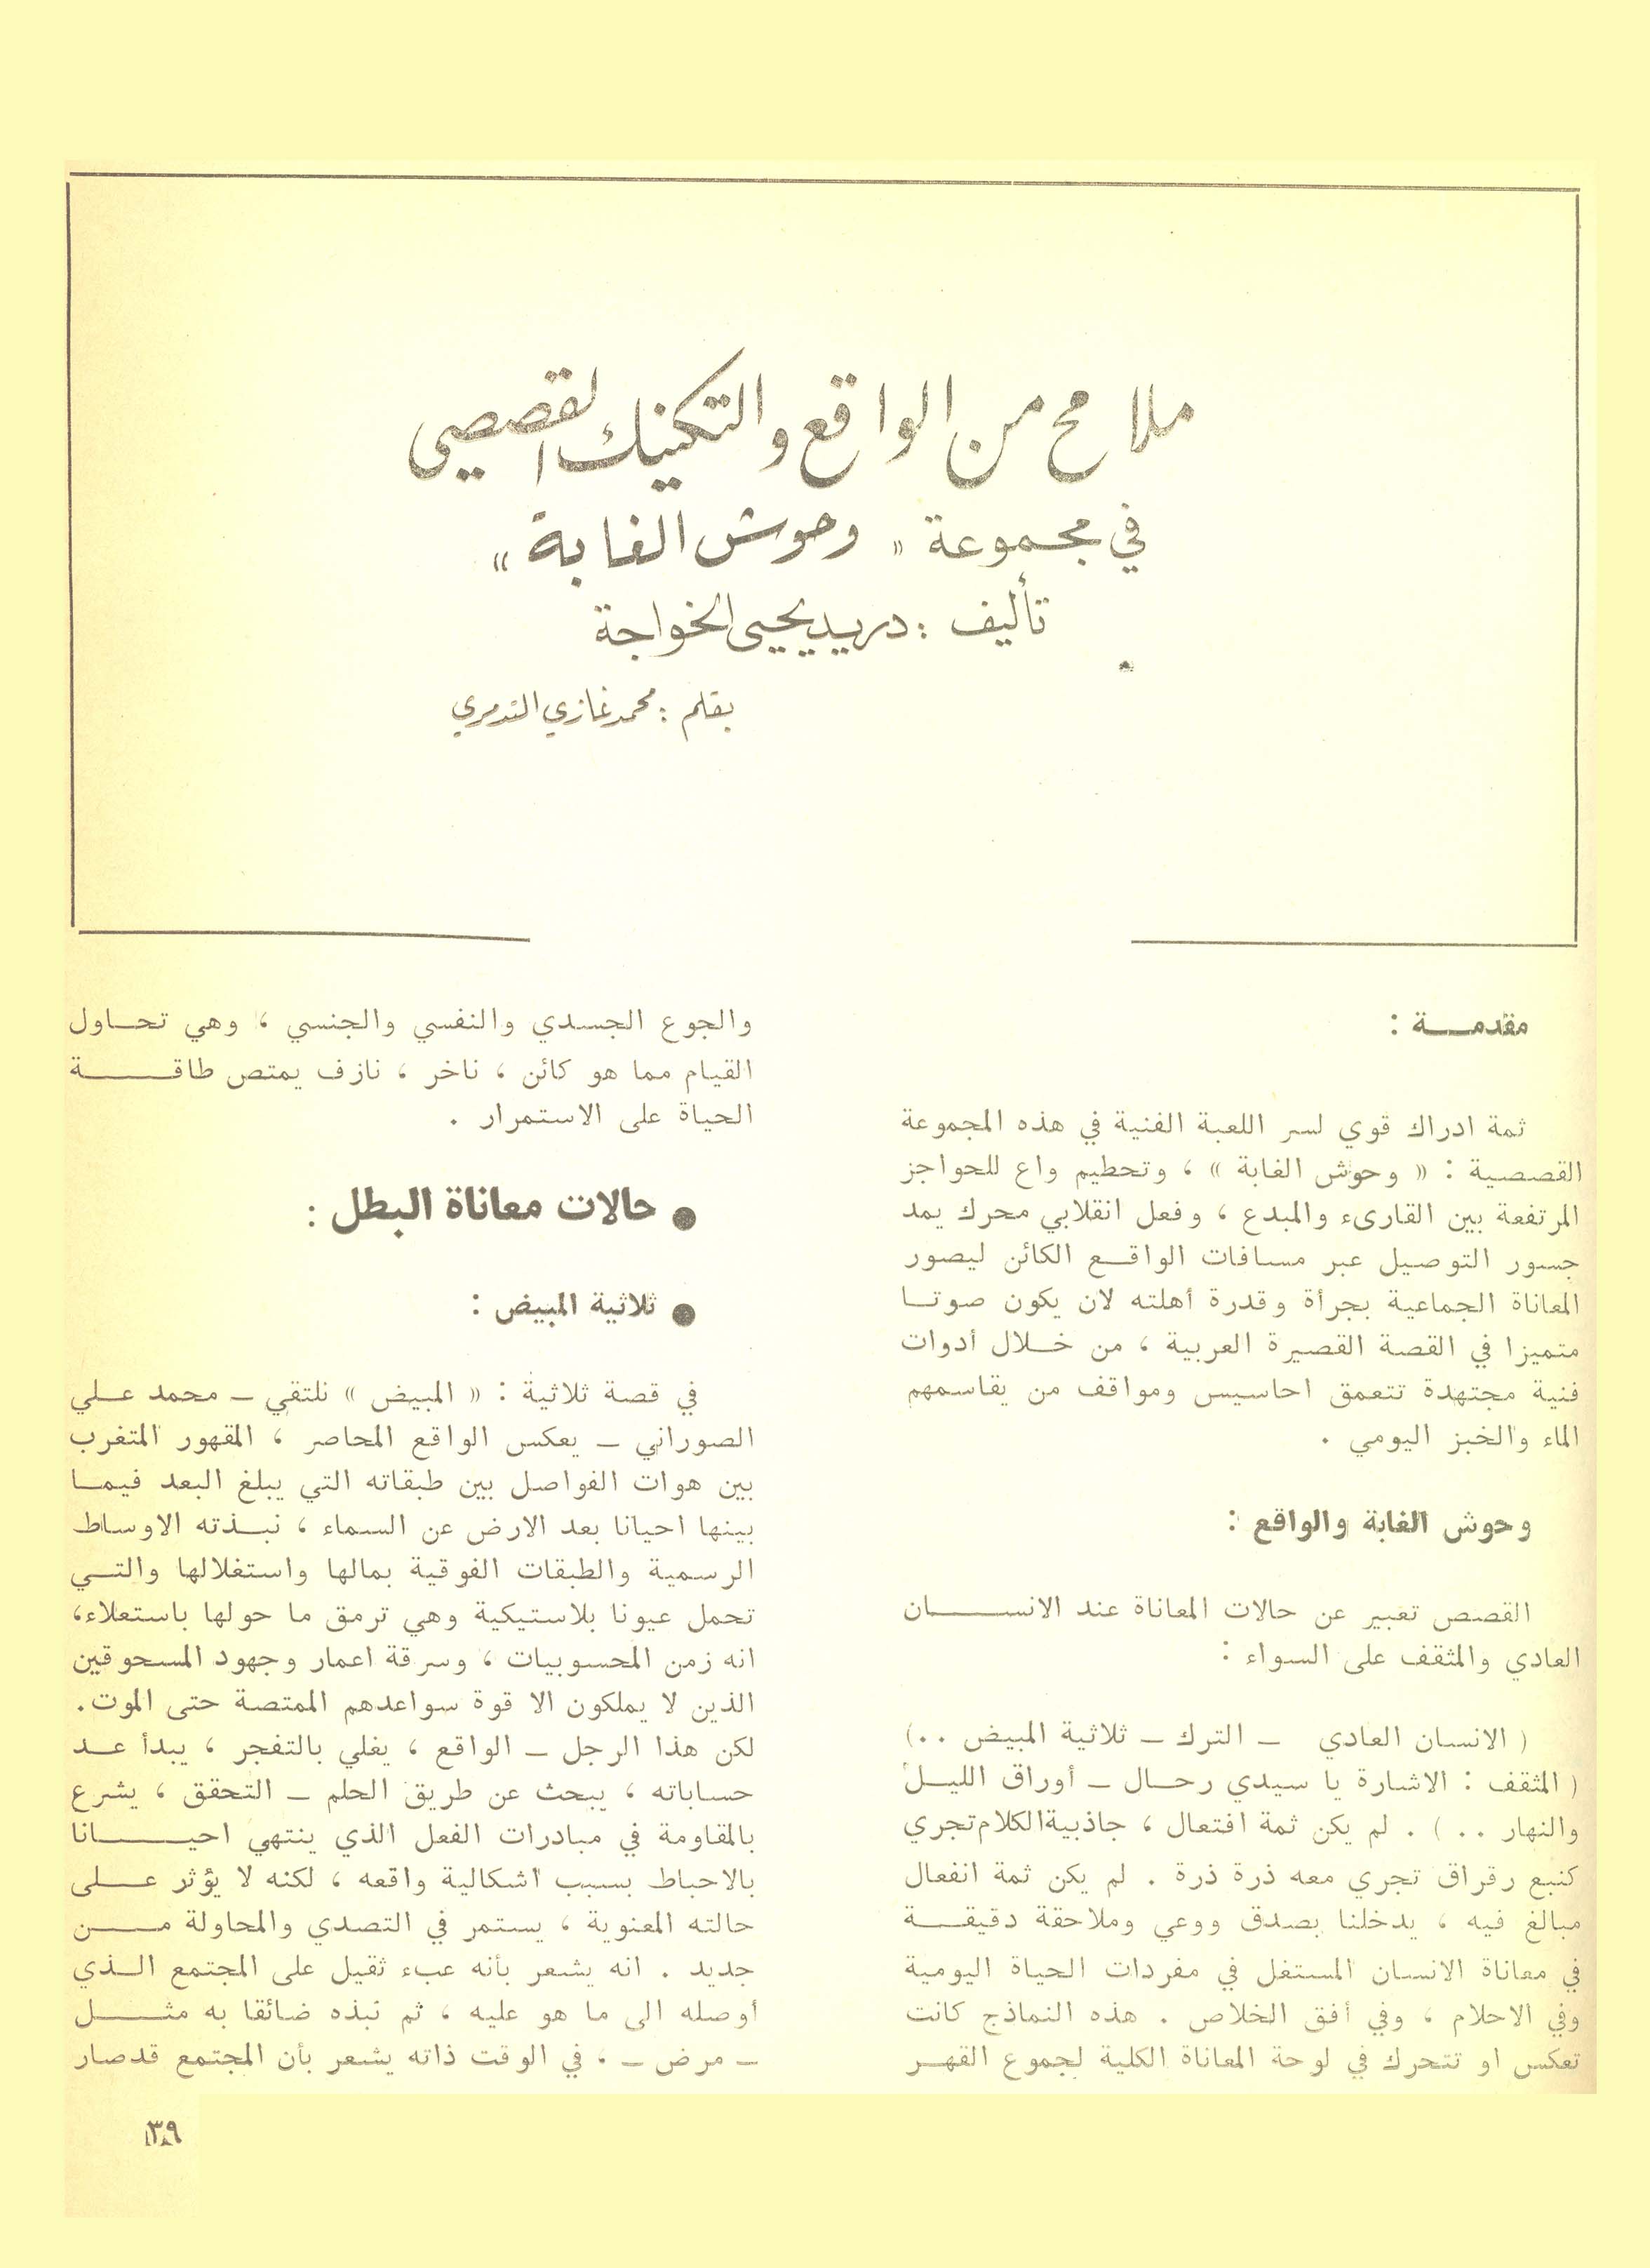 ملامح من الواقع والتكنيك القصصي
في مجموعة « وحوش الغابة »
تأليف : دريد يحيى الخواجة
بقلم : محمد غازي التدمري
مقدمـــة :
ثمة ادراك قوي لسر اللعبة الفنية في هذه المجموعة
القصصية : « وحوش الغابة » ، وتحطيم واع للحواجز
المرتفعة بين القارىء والمبدع ، وفعل انقلابي محرك يمد
جسور التوصيل عبر مسافات الواقـع الكائن ليصور
المعاناة الجماعية بجرأة وقدرة أهلته لان يكون صوتـا
متميزا في القصة القصيرة العربية ، من خـلال أدوات
فنية مجتهدة تتعمق احاسيس ومواقف من يقاسمهم
الماء والخبز اليومي .
وحوش الغابة والواقع :
القصص تعبير عن حالات المعاناة عند الانســـان
العادي والمثقف على السواء :
( الانسان العادي – الترك – ثلاثية المبيض . . )
( المثقف : الاشارة يا سيدي رحـال – أوراق الليـل
والنهار . . ) . لم يكن ثمة افتعال ، جاذبية الكلام تجري
كنبع رقراق تجري معه ذرة ذرة . لم يكن ثمة انفعال
مبالغ فيه ، يدخلنا بصدق ووعي وملاحقة دقيقـــة
في معاناة الانسان المستغل في مفردات الحياة اليومية
وفي الاحلام ، وفي أفق الخلاص . هذه النماذج كانت
تعكس او تتحرك في لوحة المعاناة الكلية لجموع القهـر
والجوع الجسدي والنفسي والجنسي ، وهي تحـاول
القيام مما هو كائن ، ناخر ، نازف يمتص طاقـــــة
الحياة على الاستمرار .
● حالات معاناة البطل :
● ثلاثية المبيض :
في قصة ثلاثية : « المبيض » نلتقي – محمد عـلي
الصوراني – يعكس الواقع المحاصر ، المقهور المتغرب
بين هوات الفواصل بين طبقاته التي يبلغ البعد فيمـا
بينها احيانا بعد الارض عن السماء ، نبـذته الاوساط
الرسمية والطبقات الفوقية بمالها واستغلالها والتـي
تحمل عيونا بلاستيكية وهي ترمق ما حولها باستعلاء،
انه زمن المحسوبيات ، وسرقة اعمار وجهود المسحوقين
الذين لا يملكون الا قوة سواعدهم الممتصة حتى الموت.
لكن هذا الرجل – الواقع ، يغلي بالتفجر ، يبدأ عـد
حساباته ، يبحث عن طريق الحلم – التحقق ، يشرع
بالمقاومة في مبادرات الفعل الذي ينتهي احيـــانا
بالاحباط بسبب اشكالية واقعه ، لكنه لا يؤثر عـلى
حالته المعنوية ، يستمر في التصدي والمحاولة مـــن
جديد . انه يشعر بأنه عبء ثقيل على المجتمع الـذي
أوصله الى ما هو عليه ، ثم نبذه ضائقا به مثــــل
– مرض – ، في الوقت ذاته يشعر بأن المجتمع قد صار